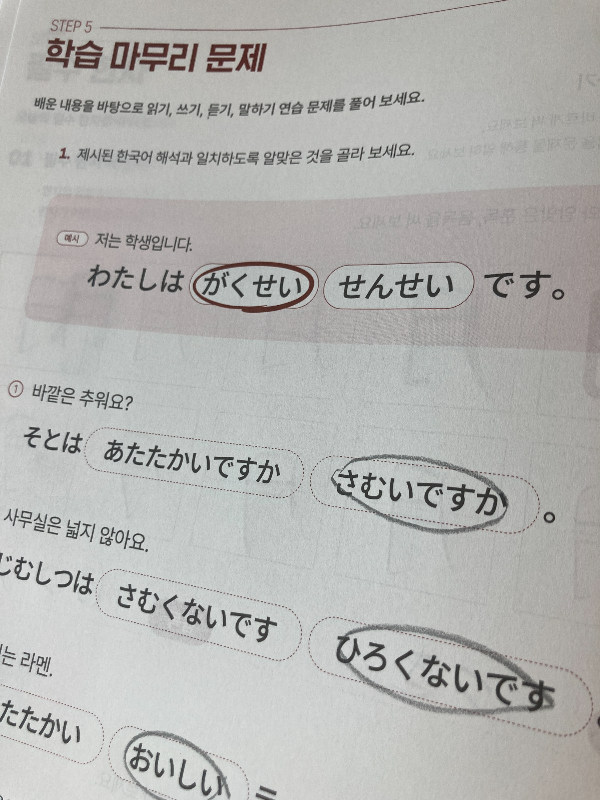 STEP 5
학습 마무리 문제
배운 내용을 바탕으로 읽기, 쓰기, 듣기, 말하기 연습 문제를 풀어 보세요.
1. 제시된 한국어 해석과 일치하도록 알맞은 것을 골라 보세요.
예시 저는 학생입니다.
わたしは がくせい せんせい です。
① 바깥은 추워요?
そとは あたたかいですか さむいですか 。
사무실은 넓지 않아요.
じむしつは さむくないです ひろくないです
는 라멘.
たたかい おいしい